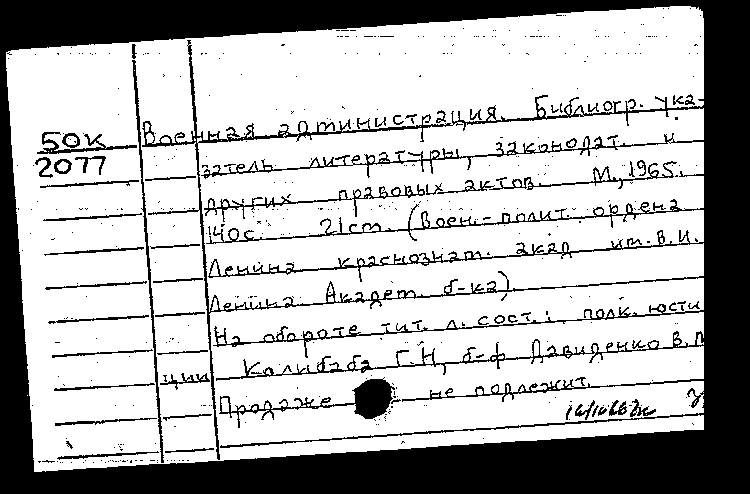 Военная администрация. Библиогр. ука-
50К
2077
затель литературы, законодат. и
других правовых актов. М., 1965.
140с. 21cm. (Воен.-полит. ордена
Ленина краснознам. акад им. В.И.
Ленина. Академ. б-ка)
На обороте тит. л. сост.: полк. юсти
ции Калибаба Г.Н, б-ф Давиденко В.
Продаже не подлежит.